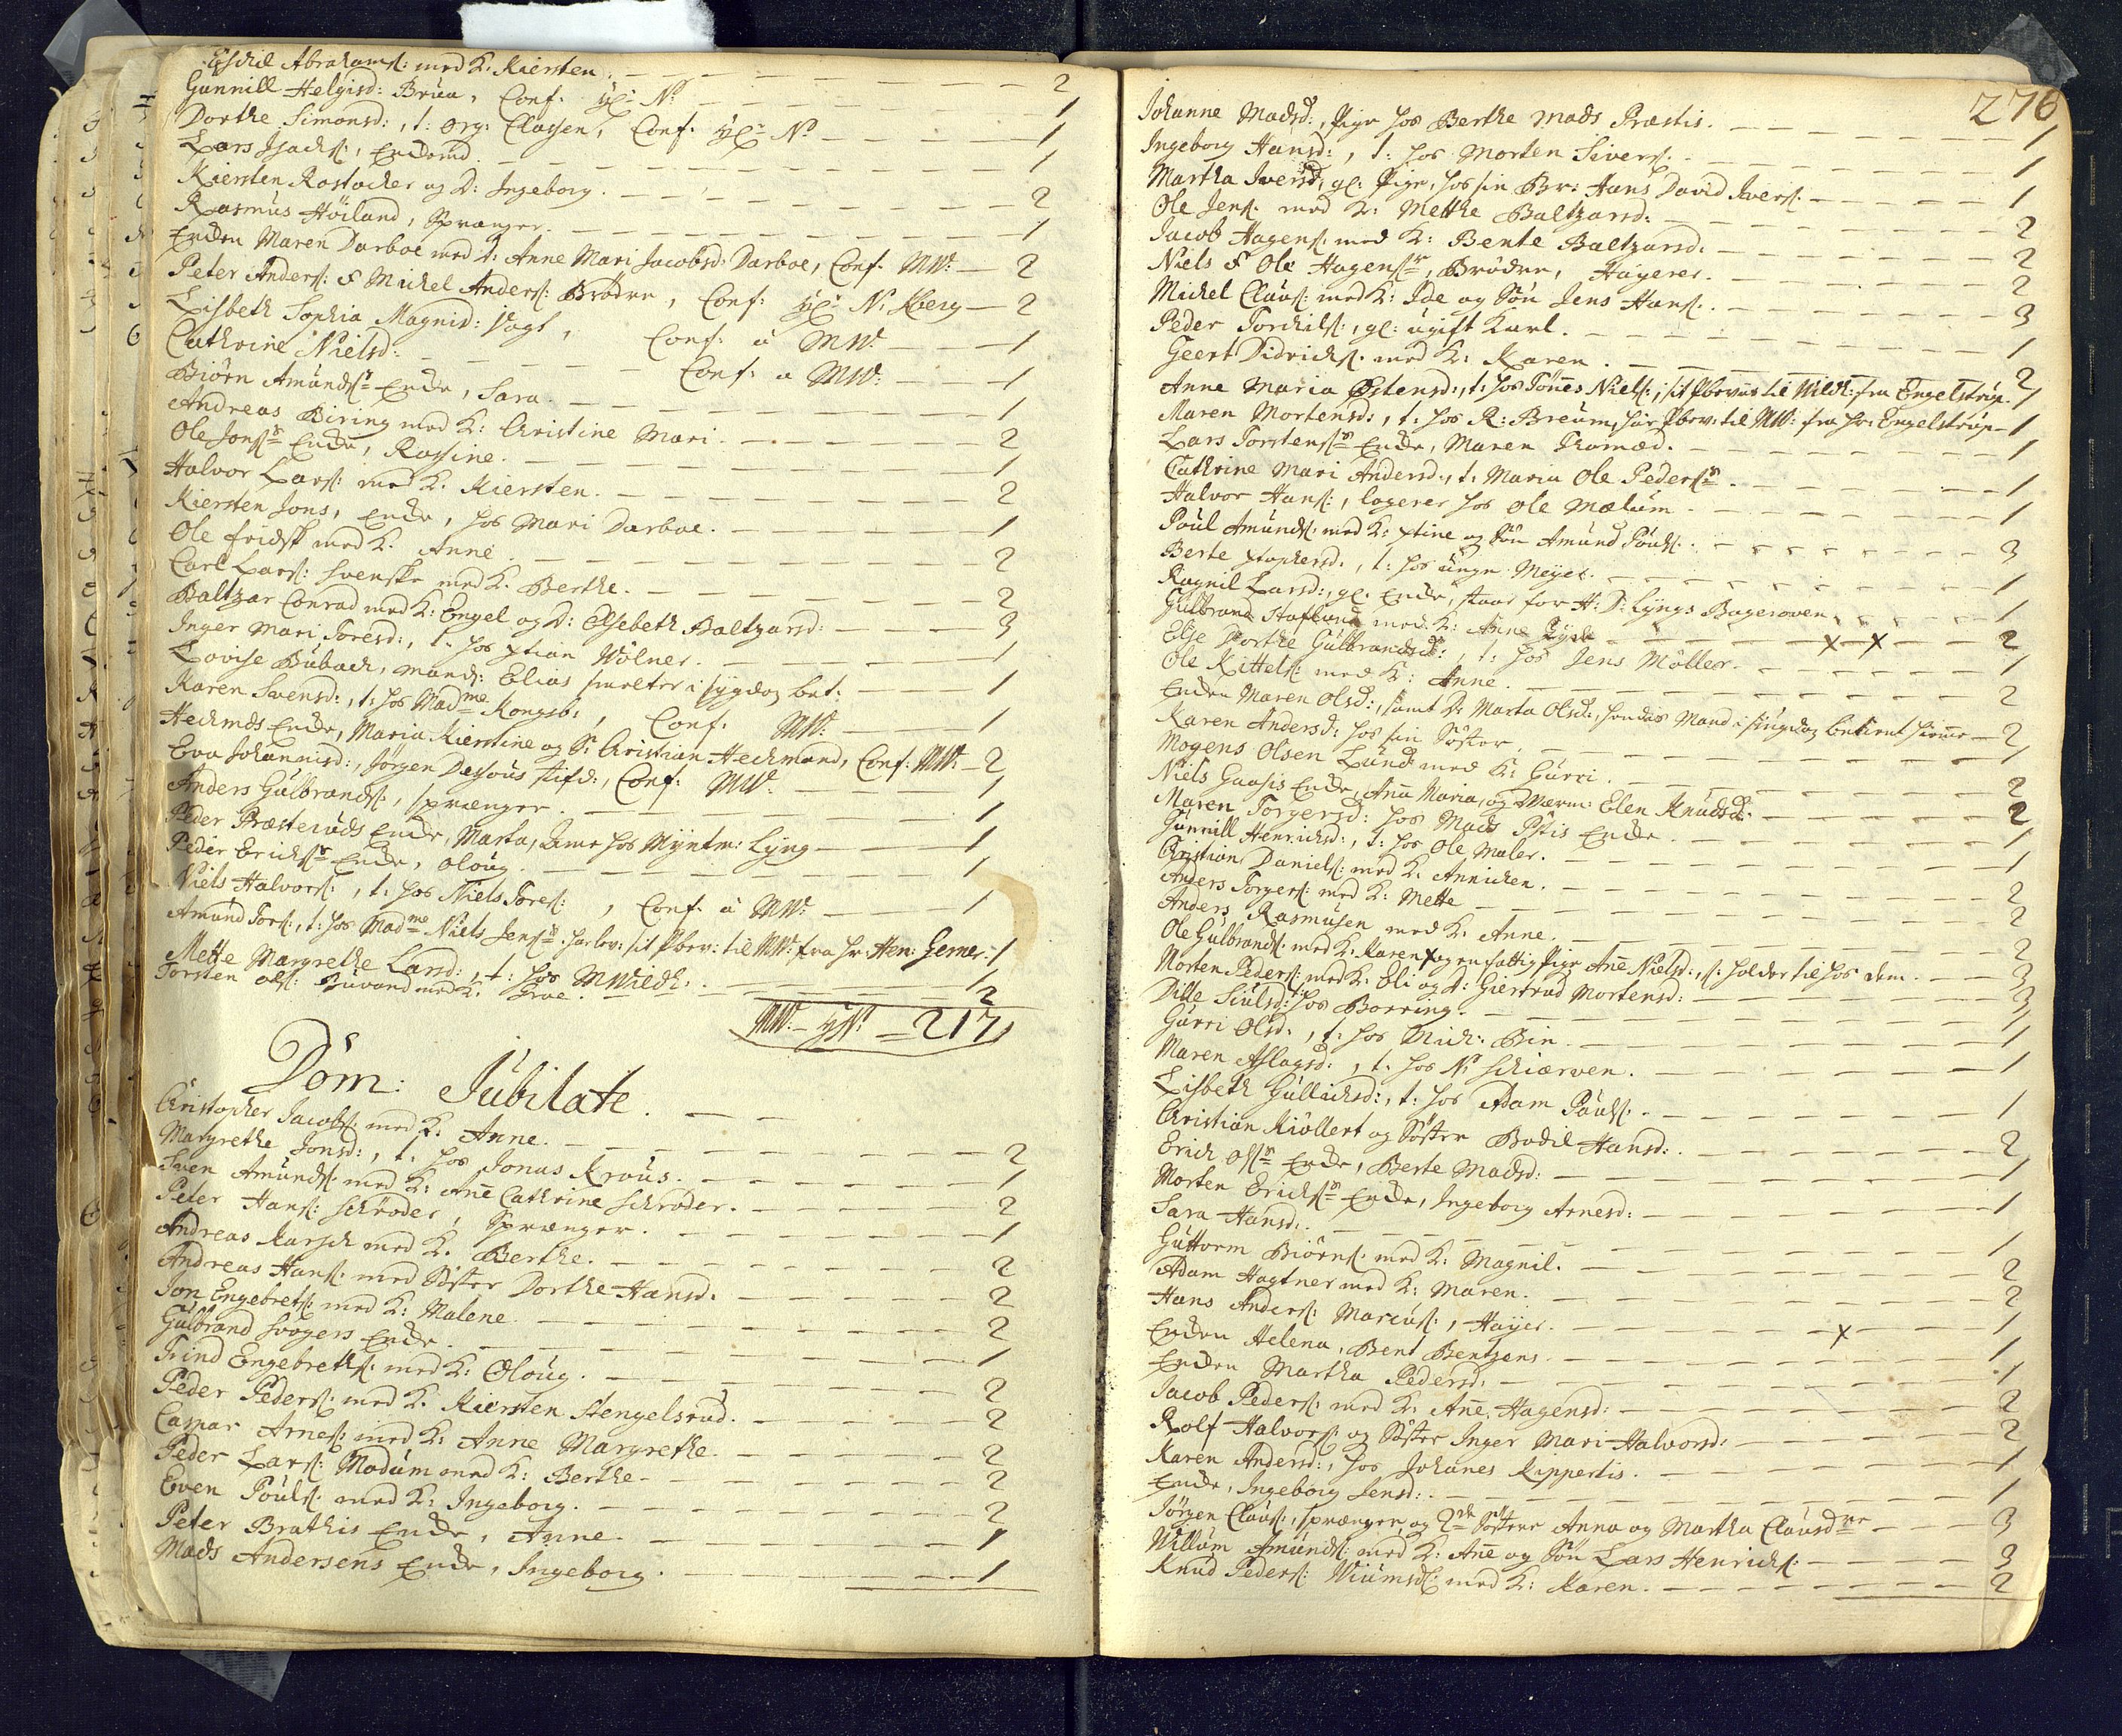 Eschil Abrahams: med K: Kiersten. 2
Gunnill Helgisd: Bruu, Conf. 1
Dorthe Simonsd:, t: org: Classen, Conf. 1
Lars Isachs:, Enkemd. 1
Kiersten Rostocker og D: Ingeborg. 2
Rasmus Höiland, Sprænger. 1
Enken Maren Darboe med D: Anne Mari Jacobsd: Darboe, Conf. MW: 2
Peter Anders: & Michel Anders: Brødre, Conf: Kberg 2
Lisbeth Sophia Magnid: Vogt, Conf: a MW: 1
Cathrine Nielsd: Conf: a MW: 1
Biörn Amunds: Enke, Sara. 1
Andreas Biring med K: Christine Mari. 2
Ole Jons: Enke, Rossine. 1
Halvor Lars: med K. Kiersten. 2
Kiersten Jons, Enke, hos Mari Darboe. 1
Ole fridsk med K. Anne. 2
Carl Lars: Svenske med K. Berthe. 2
Baltzar Conrad med K: Engel og D: Elsebeth Baltzarsd: 3
Inger Mari Toresd:, t: hos xtian Wölner. 1
Lovise Bubach, mands: Elias smelter i sygdom bet: 1
Karen Svensd:, t: hos Madme Kongsb:, Conf. MW: 1
Heckmds Enke, Maria Kierstine og S: Christian Heckmand, Conf: MW: 2
Eva Johannisd:, Jørgen Dessous stifd:, Conf: MW: 1
Anders Gulbrands:, sprænger. 1
Peder Præsteruds Enke, Marta, hos Myntm: Lyng 1
Peder Erichs: Enke, Oloug. 1
Niels Halvors:, t: hos Niels Tores:, Conf: a MW: 1
Amund Tors:, t: hos Madme Niels Jens: har lev: sit Pbev: til MW: fra Hr: Hen: Gerner. 1
Mette Margrethe Larsd:, t: hos MWildh: 1
Torsten Ols: Buvand med K: 2
MW: = 217
Dom: Jubilate.
Christopher Jacobs: med K: Anne. 2
Margrethe Jonsd:, t: hos Jonas Kraus. 1
Sven Amunds: med K: Ane Cathrine Schrøder. 2
Peter Hans: Schröder, Sprænger. 1
Andreas Karsch med K. Berthe. 2
Andreas Hans: med Söster Dorthe Hansd: 2
Jon Engebrets: med K: Malene. 2
Gulbrand Svogers Enke. 1
Trind Engebreths: med K: Oloug. 2
Peder Peders: med K. Kiersten Stengelsrud. 2
Caspar Arnes: med K: Anne Margrethe. 2
Peder Lars: Modum med K: Berthe. 2
Even Pouls: med K: Ingeborg. 2
Peter Brathis Enke, Anne. 1
Mads Andersens Enke, Ingeborg. 1
276
Johanne Madsd:, Pige hos Berthe Mads Præstis. 1
Ingeborg Hansd:, t: hos Morten Sivers: 1
Martha Iversd: gl: Pige, hos sin Br: Hans David Ivers: 1
Ole Jens: med K: Mette Baltzarsd: 2
Jacob Hagens: med K: Bente Baltzarsd: 2
Niels & Ole Hagens:, Brödre, Hayerer. 2
Michel Claus: med K: Ide og Sön Jens Hans: 3
Peder Torchils:, gl: ugift Karl. 1
Geert Didrichs: med K: Karen. 2
Anne Maria Østensd:, t: hos Tönes Niels:, sit Pbeviis til Wildh: fra Engelstrup. 1
Maren Mortensd:, t: hos R: Breum, har Pbev: til MW: fra Hr: Engelstrup 1
Lars Torstens: Enke, Maren Thomæd. 1
Cathrine Mari Andersd:, t: Maria Ole Peders: 1
Halvor Hans:, logerer hos Ole Mælum. 1
Poul Amunds: med K: xtine og Sön Amund Pouls: 3
Berte xtophersd:, t: hos unge Meyer. 1
Ragnil Larsd:, gl: Enke, staar for H: D: Lyngs Bagerovn. 1
Gulbrand med K: Anne x x 2
Else Dorthe Gulbrandsd:, t: hos Jens Möller. 1
Ole Kittels: med K: Anne. 2
Enken Maren Olsd:, samt D: Marta Olsd:, hendis Mand i sÿgdom betient hiemme 2
Karen Andersd: hos sin Söster. 1
Mogens Olsen Lund med K: Gurri. 2
Niels Gaasis Enke, Ana Maria, og Værm: Elen Knudsd: 2
Maren Torgersd: hos Mads Pstis Enke. 1
Gunnill Henrichsd:, t: hos Ole Maler. 1
Christian Daniels: med K. Annichen. 2
Anders Torgers: med K: Mette 2
Anders Rasmusen med K: Anne. 2
Ole Gulbrands: med K: Karen x og en fattig Pige Ane Nielsd:, s: holder til hos dem. 3
Morten Peders: med K: Eli og D: Giertrud Mortensd: 3
Ditle Siulsd: hos Borring. 1
Gurri Olsd:, t: hos Mich: Bin. 1
Maren Aslagsd:, t: hos N: Schiærven. 1
Lisbeth Gullichsd:, t: hos Adam Pouls: 1
Christian Kiöllert og Söster Bodil Hansd: 2
Erich Ols: Enke, Berte Madsd: 1
Morten Erichs: Enke, Ingeborg Arnesd: 1
Sara Hansd: 1
Guttorm Biörns: med K: Magnil. 2
Adam Hagtner med K: Maren. 2
Hans Anders: Marcus:, Hayer. x 1
Enken Helena, Bent Bentzens. 1
Enken Martha Pedersd: 1
Jacob Peders: med K: Ane Hagensd: 2
Rolf Halvors: og Söster Inger Mari Halvorsd: 2
Karen Andersd:, hos Johanes Rippertis. 1
Enke, Ingeborg Jensd: 1
Jörgen Claus:, sprænger og 2de Söstre Anna og Martha Clausdtre 3
Willum Amunds: med K: Ane og Sön Lars Henrichs: 3
Knud Peders: Wiums: med K: Karen. 2